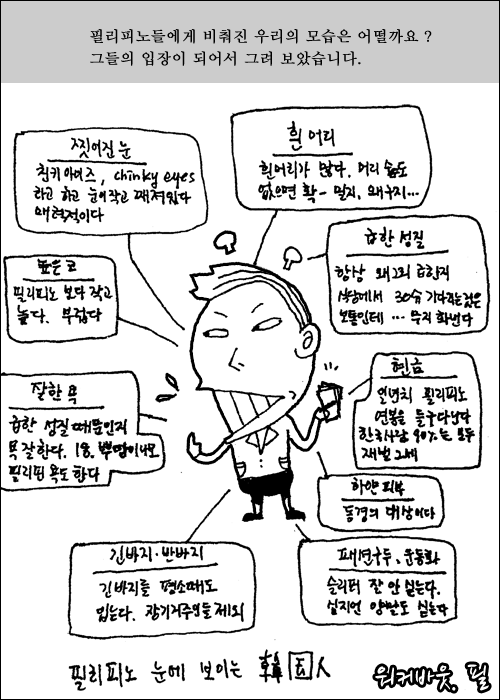 필리피노들에게 비춰진 우리의 모습은 어떨까요 ?
그들의 입장이 되어서 그려 보았습니다.
찢어진 눈
친키 아이즈, chinky eyes
라고 하고 눈이 작고 째져있다
매력적이다
흰 머리
흰머리가 많다. 머리 숱도
없으면 확- 멀지, 왜구지...
높은 코
필리피노 보다 작고
높다. 부럽다
급한 성질
항상 왜그리 급한지
식당에서 30분 기다리는것은
보통인데 ... 무지 화낸다
잘한 욕
급한 성질 때문인지
욕 잘한다. 18.
필리핀 욕도 한다
현금
일년치 필리피노
연봉을 들구다닌다
한국사람 90%는 모두
재벌 2세
하얀피부
동경의 대상이다
긴바지·반바지
긴바지를 평소때도
입는다. 장기거주인들 제외
패션구두, 운동화
슬리퍼 잘 안 신는다.
심지언 양말도 신는다
필리피노 눈에 보이는 韓国人
워커바웃, 필